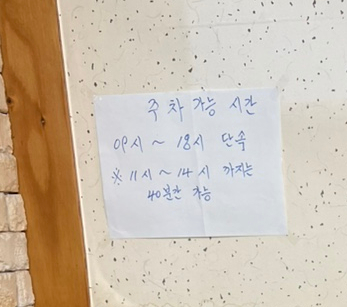 주차 가능 시간
09시 ~ 18시 단속
※ 11시 ~ 14시 까지는
40분간 가능